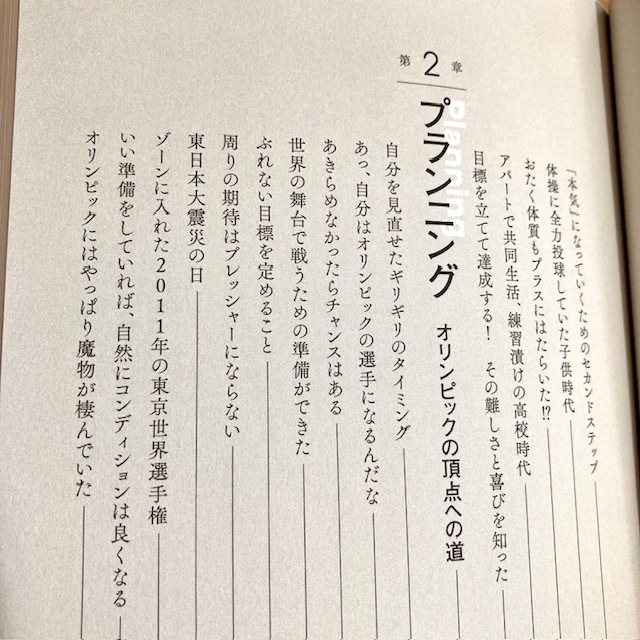 「本気」になっていくためのセカンドステップ
体操に全力投球していた子供時代
おたく体質もプラスにはたらいた!?
アパートで共同生活、練習漬けの高校時代
目標を立てて達成する! その難しさと喜びを知った
第2章
Planning
プランニング オリンピックの頂点への道
自分を見直せたギリギリのタイミング
あっ、自分はオリンピックの選手になるんだな
あきらめなかったらチャンスはある
世界の舞台で戦うための準備ができた
ぶれない目標を定めること
周りの期待はプレッシャーにならない
東日本大震災の日
ゾーンに入れた2011年の東京世界選手権
いい準備をしていれば、自然にコンディションは良くなる
オリンピックにはやっぱり魔物が棲んでいた